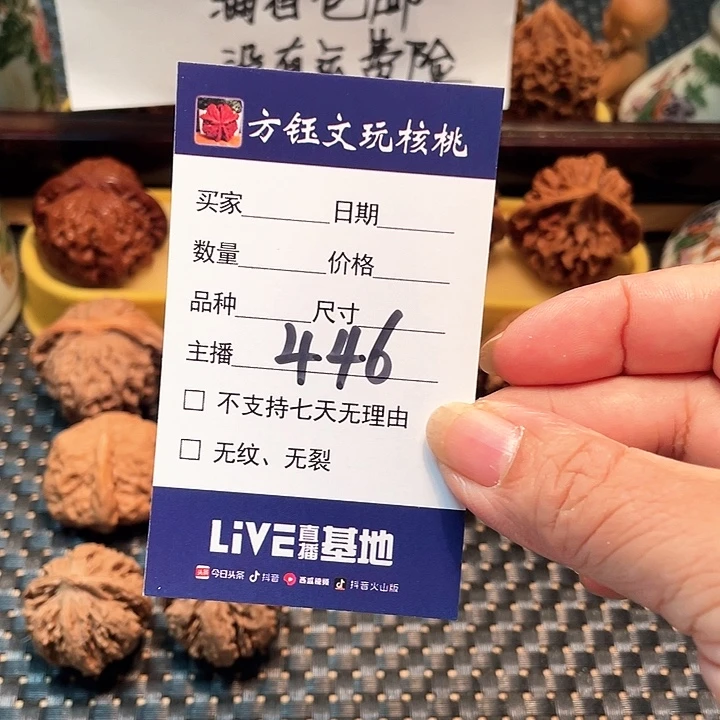 满百包邮
没有运费险
方钰文玩核桃
买家________日期_______
数量________价格_______
品种_______尺寸________
446
主播___________________
□ 不支持七天无理由
□ 无纹、无裂
LiVE直播基地
头条 今日头条 抖音 西瓜视频 抖音火山版